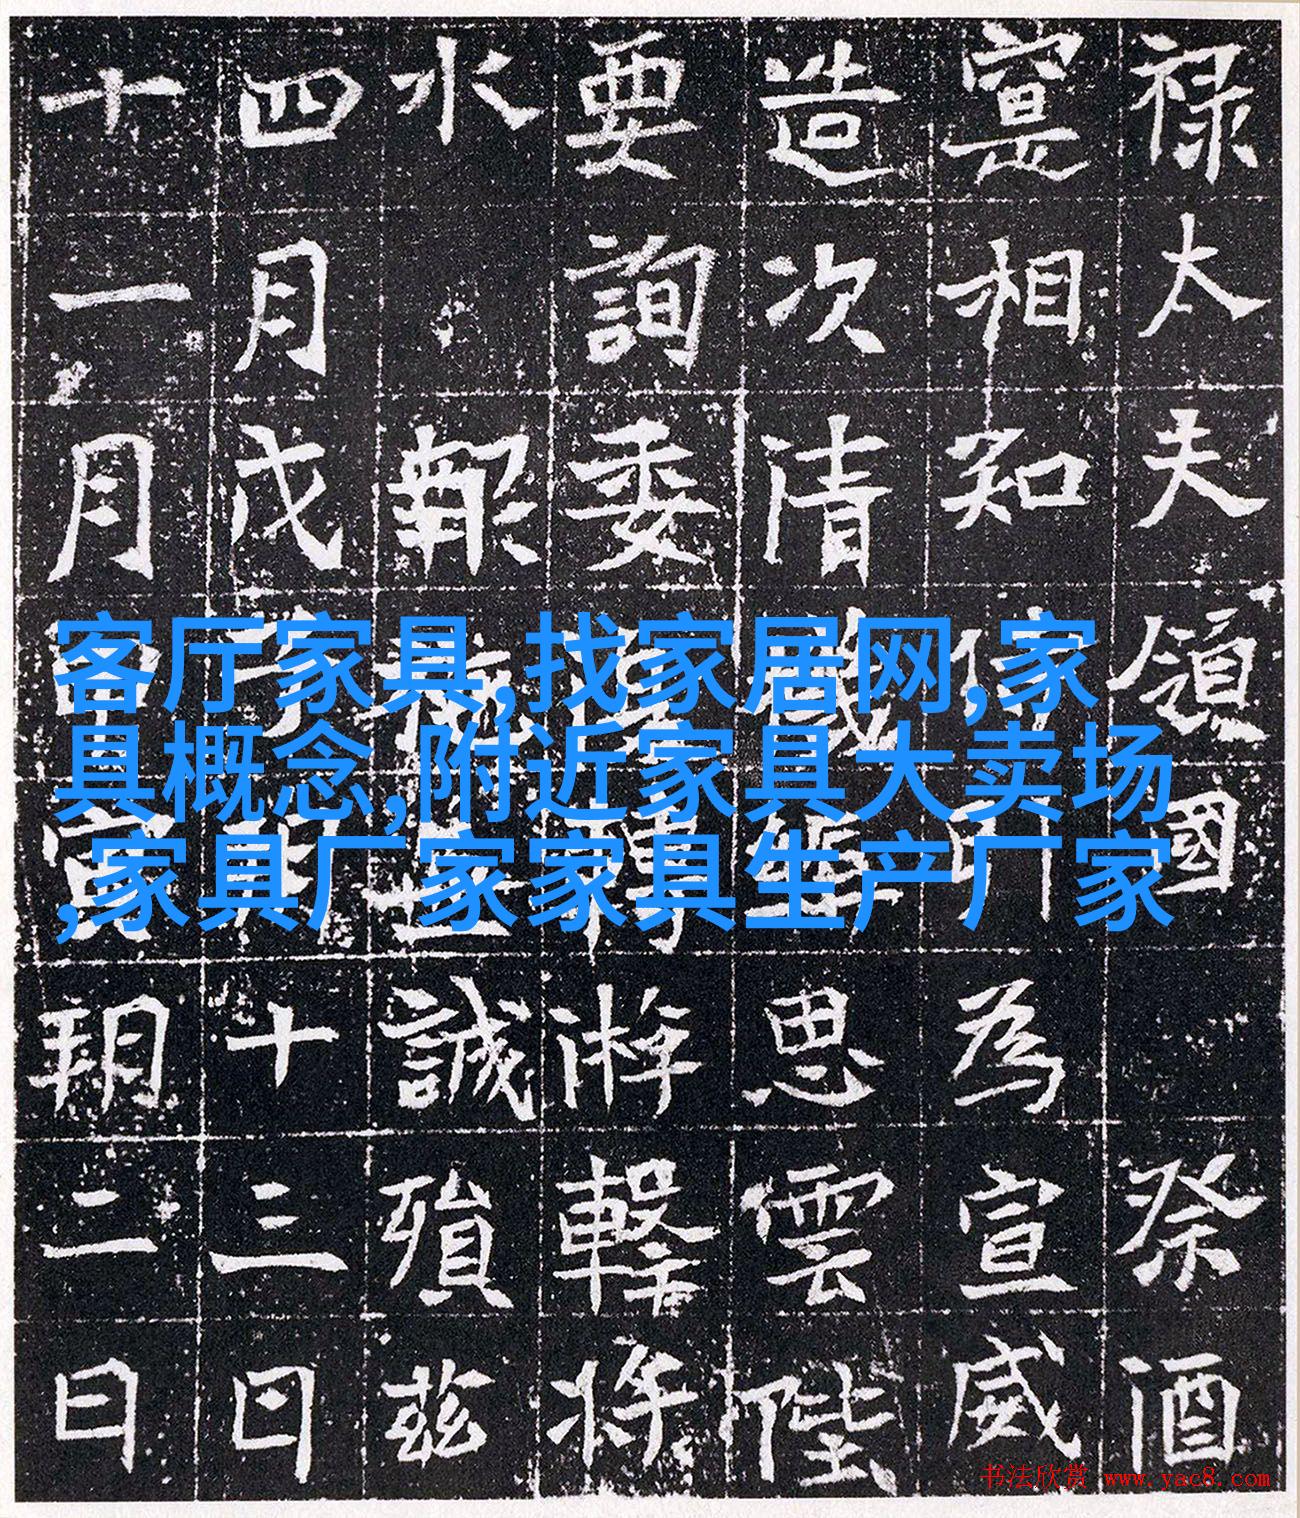 客厅家具,找家居网,家
具概念,附近家具大卖场
,家具厂家家具生产厂家
禄太夫領國祭酒
寔相知為宣威
造次清思雲陛
要詢委游擊將
水報世誠殞茲
四月戊子朔十三日
十一月甲寅朔二日
书法欣赏 www.yac8.com